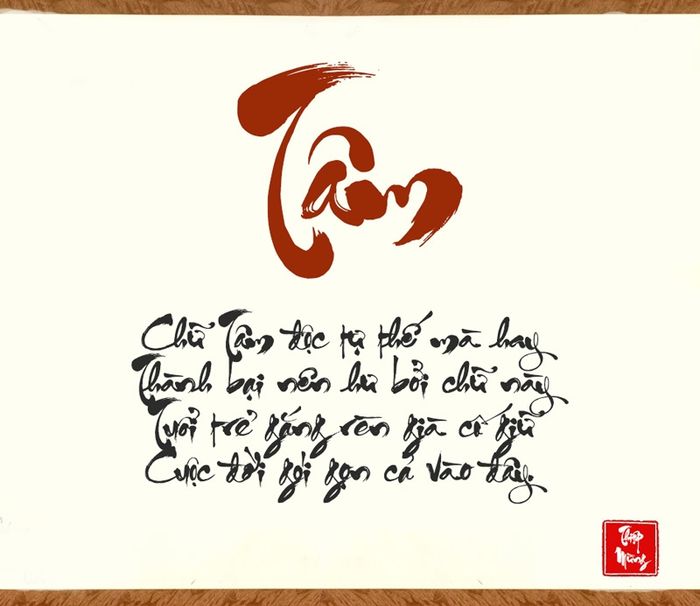 Tâm
Chữ Tâm độc tự thế mà hay
Thành bại nên hư bởi chữ này
Tuổi trẻ gắng rèn già cố giữ
Cuộc đời gói gọn cả vào đây.
Thiệp
Mừng